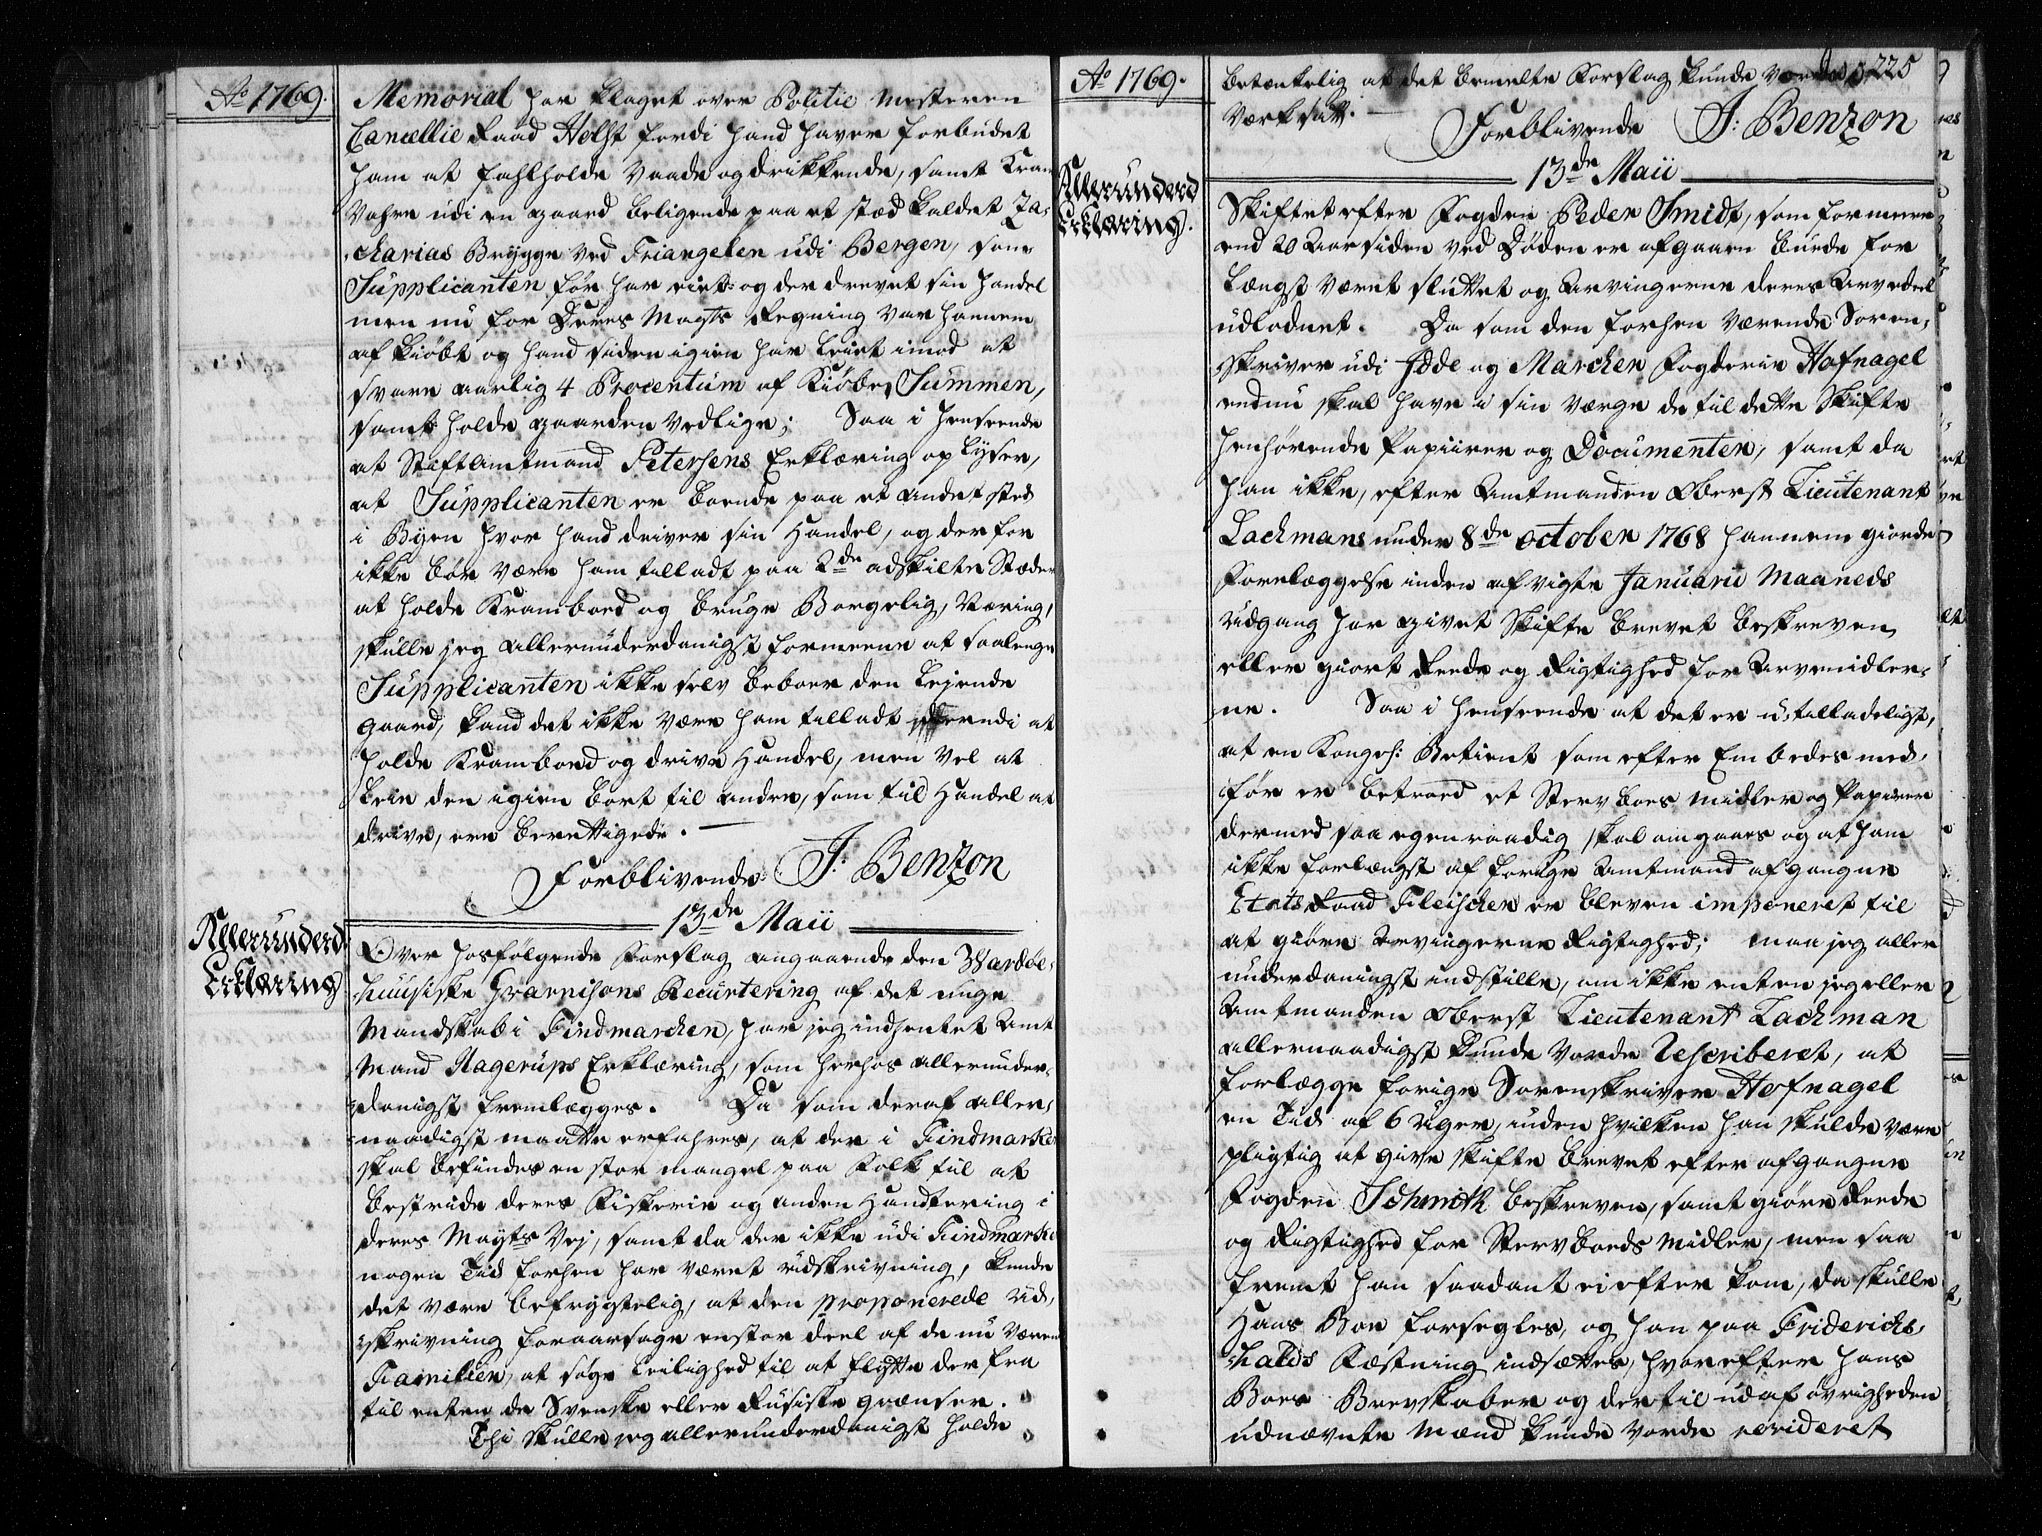 Ao 1769.
Memorial har klaget over Politie Mesteren
Cancellie Raad Holst fordi hand haver forbudet
ham at fahlholde Vaade og drikkende, samt Kram
Vahre udi en gaard beligende paa et stæd kaldet Za-
charias Brygge ved Triangelen udi Bergen, som
Supplicanten før har eiet og der drevet sin Handel
men nu for Deres Maÿts Regning var hannem
af kiøbt og hand siden igien har leiet imod at
svare aarlig 4 Procentum af Kiøbe Summen,
samt holde gaarden Vedlige; Saa i henseende
at Stiftamtmand Petersens Erklæring oplyser,
at Supplicanten er boende paa et andet sted
i Byen hvor hand driver sin Handel, og derfor
ikke bør være ham tilladt paa 2de adskilte Stæder
at holde Kramboed og bruge Borgelig Næring,
skulle jeg allerunderdanigst formeene at saalenge
Supplicanten ikke selv beboer den Lejende
gaard, kand det ikke være ham tilladt at
holde Kramboed og drive Handel, men vel at
leie den igien bort til andre, som til Handel at
drive, ere berettigede.
Forblivende J: Benzon
13de Maii
Allerunderd
Erklæring
Over hosfølgende Forslag angaaende den Wardøe-
huusiske Guarnisons Recurtering af det unge
Mandskab i Findmarchen, har jeg indhentet Amt
Mand Hagerups Erklæring, som herhos allerunder-
danigst fremlægges. Da som deraf aller-
naadigst maatte erfahres, at der i Findmarken
skal befindes en stor mangel paa Folk til at
bestride deres Fiskerie og anden Handtering i
deres Maÿts Vej, samt da der ikke udi Findmarken
nogen Tid forhen har været udskrivning, kunde
det være befrygtelig, at den proponerede Ud-
skrivning foraarsage en stor deel af de nu værende
Familier, at søge leilighed til at flytte derfra
til enten de Svenske eller Rusiske grændser.
Thi skulle jeg allerunderdanigst holde
Ao 1769.
225
betænkelig at det bemelte Forslag kunde vorde
Verksatt.
Forblivende J: Benzon
13de Maii
Allerunderd
Erklæring.
Skiftet efter Fogden Peder Smidt, som for meere
end 20 Aar siden ved Døden er afgaaen burde for
længst været sluttet og Arvingerne deres Arvedeel
udlodnet. Da som den forhen værende Soren-
skriver udi Idde og Marchen Fogderie Hofnagel
endnu skal have i sin Værge de til dette Skifte
henhørende Papiirer og Documenter, samt da
han ikke, efter Amtmanden Oberst Lieutenant
Lachmans under 8de october 1768 hannem giorde
Forelæggelse inden afvigte Januarii Maaneds
Udgang har givet Skifte brevet beskreven
eller giort Reede og Rigtighed for Arvemidler-
ne. Saa i henseende at det er utilladeligt,
at en Kongel: Betient som efter Embedes med-
før er betroed et Sterfboes midler og Papirer
dermed saa egenraadig skal omgaaes og at ham
ikke forlængst af forrige Amtmand afgangne
Etats Raad Fleischer er bleven imponeret til
at giøre Arvingerne Rigtighed; maa jeg aller
underdanigst indstille, om ikke enten jeg eller
Amtmanden Oberst Lieutenant Lachman
allernaadigst kunde vorde Rescriberet, at
forlægge forrige Sorenskriver Hofnagel
en Tid af 6 Uger, inden hvilken han skulde være
pligtig at give Skifte brevet efter afgangne
Fogden Schmith beskreven, samt giøre Reede
og Rigtighed for Stervboeds Midler, men saa
fremt han saadant ei efterkom, da skulle
Hans Boe forsegles, og han paa Friderichs-
halds Fæstning indsættes, hvorefter hans
Boes Brevskaber og dertil ud af øvrigheden
udnævnte Mænd kunde vorde revideret